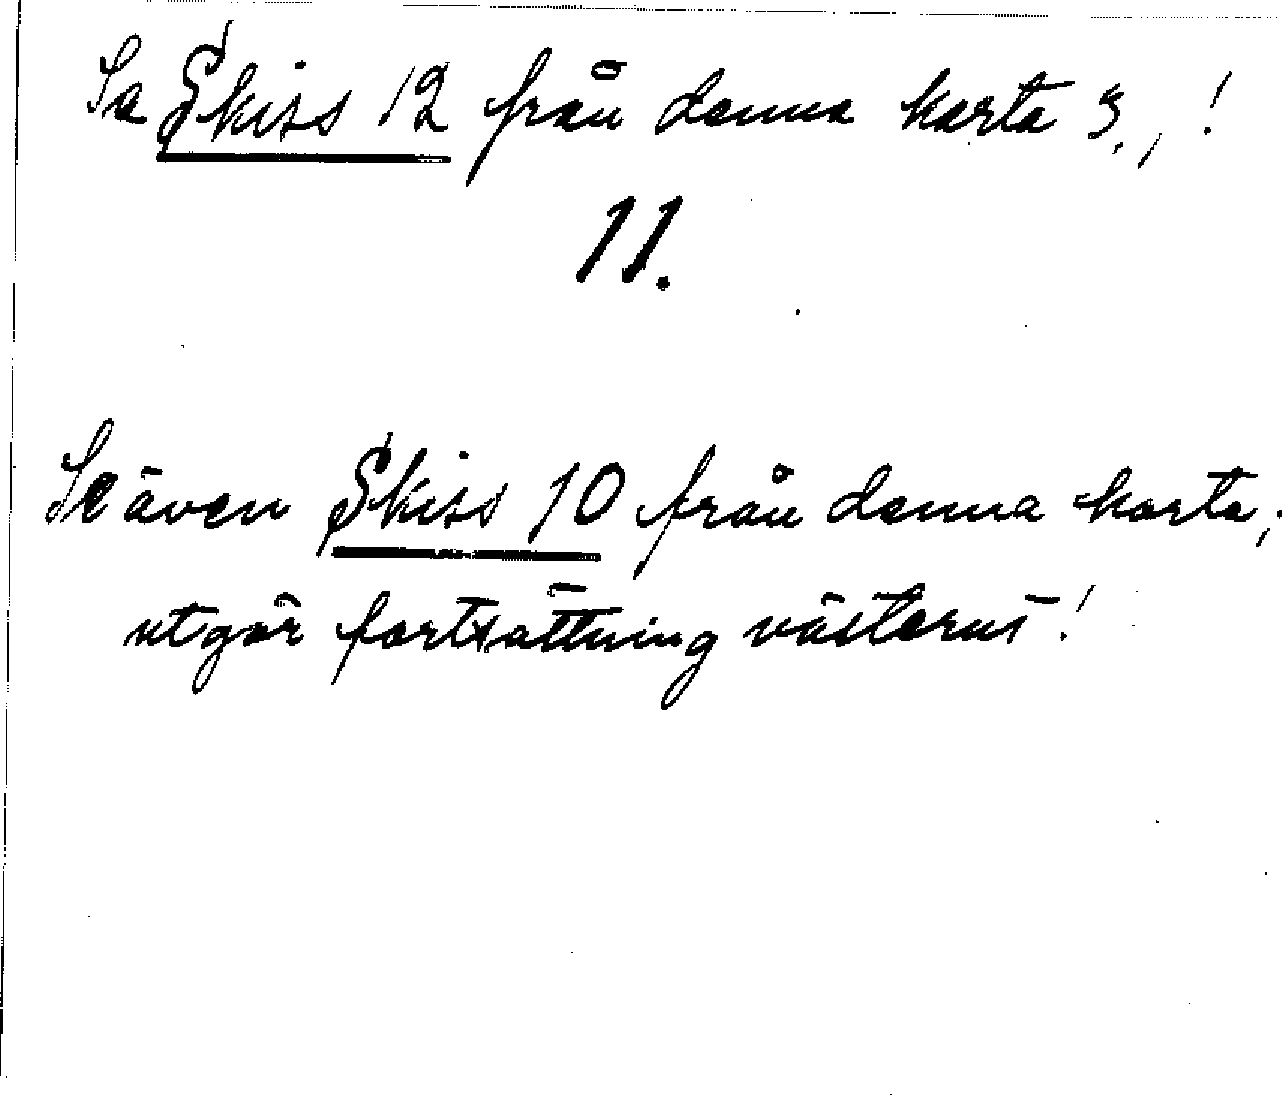 Se Skiss 12 från denna karta 3., !
11.
Se även Skiss 10 från denna karta,
utgör fortsättning västerut!